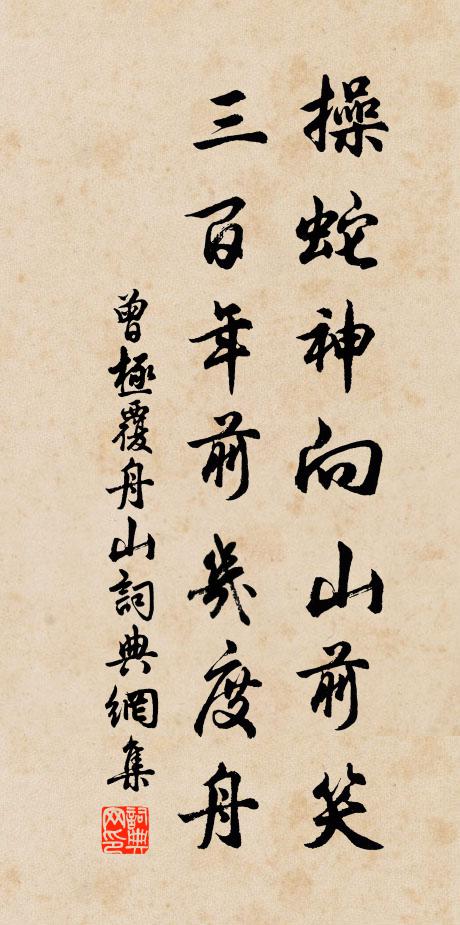 操蛇神向山前笑
三百年前幾度舟
曾極覆舟山詞典網集
詞典网印